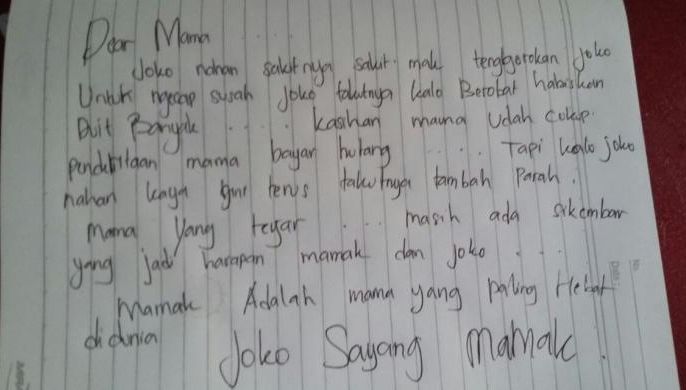 Dear Mama
Joko nahan sakitnya sakit mak tenggorokan joko
Untuk ngecap susah joko takutnya kalo Berobat habiskan
Duit Banyak .... kasihan mama udah cukup
penderitaan mama bayar hutang .... Tapi kalo joko
nahan kaya gini terus takutnya tambah parah.
Mama yang tegar ... masih ada sikembar
yang jadi harapan mamak dan joko ...
Mamak Adalah mama yang paling Hebat
di dunia
Joko Sayang Mamak.